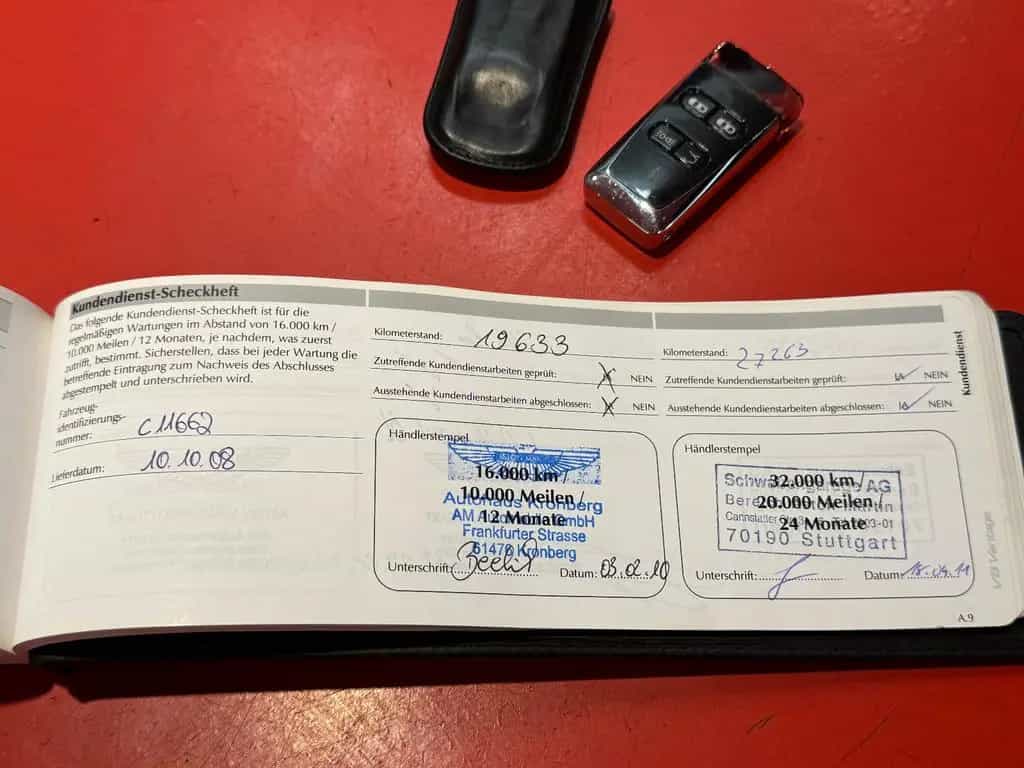 Kundendienst-Scheckheft
Das folgende Kundendienst-Scheckheft ist für die
regelmäßigen Wartungen im Abstand von 16.000 km /
10.000 Meilen / 12 Monaten, je nachdem, was zuerst
zutrifft, bestimmt. Sicherstellen, dass bei jeder Wartung die
betreffende Eintragung zum Nachweis des Abschlusses
abgestempelt und unterschrieben wird.
Fahrzeug-
identifizierungs-
nummer: C11662
Lieferdatum: 10.10.08
Kilometerstand: 19633
Zutreffende Kundendienstarbeiten geprüft: NEIN
Ausstehende Kundendienstarbeiten abgeschlossen: NEIN
Händlerstempel
16.000 km /
10.000 Meilen /
12 Monate
Autohaus Kronberg
AM GmbH
Frankfurter Strasse
61476 Kronberg
Unterschrift: Datum: 03.02.10
Kilometerstand: 27263
Zutreffende Kundendienstarbeiten geprüft: JA NEIN
Ausstehende Kundendienstarbeiten abgeschlossen: JA NEIN
Händlerstempel
32.000 km /
20.000 Meilen /
24 Monate
AG
Cannstatter
70190 Stuttgart
Unterschrift: Datum: 18.04.11
Kundendienst
V8 Vantage
A.9